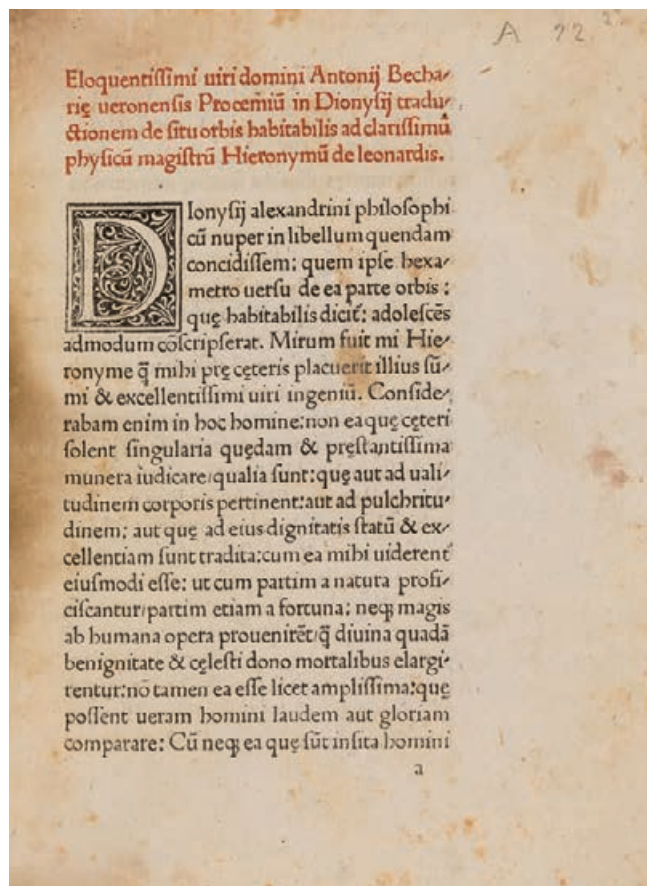 A 22
Eloquentiſſimi uiri domini Antonij Becha⸗
rię ueronenſis Procemiū in Dionyſij tradu⸗
ctionem de ſitu orbis habitabilis ad clariſſimū
phyſicū magiſtrū Hieronymū de leonardis.
DIonyſij alexandrini philoſophi
cū nuper in libellum quendam
concidiſſem: quem ipſe hexa⸗
metro uerſu de ea parte orbis :
quę habitabilis dicit̃: adoleſcēs
admodum cōſcripſerat. Mirum fuit mi Hie⸗
ronyme q̄ mihi prę cęteris placuerit illius ſū⸗
mi & excellentiſſimi uiri ingeniū. Conſide⸗
rabam enim in hoc homine: non ea quę cęteri
ſolent ſingularia quędam & pręſtantiſſima
munera iudicare/qualia ſunt: quę aut ad uali⸗
tudinem corporis pertinent: aut ad pulchritu⸗
dinem: aut quę ad eius dignitatis ſtatū & ex⸗
cellentiam ſunt tradita: cum ea mihi uiderent̃
eiuſmodi eſſe: ut cum partim a natura profi⸗
ciſcantur/partim etiam a fortuna: neq; magis
ab humana opera prouenirēt/q̄ diuina quadā
benignitate & cęleſti dono mortalibus elargi⸗
rentur: nō tamen ea eſſe licet ampliſſima: quę
poſſent ueram homini laudem aut gloriam
comparare: Cū neq; ea quę ſūt inſita homini
a